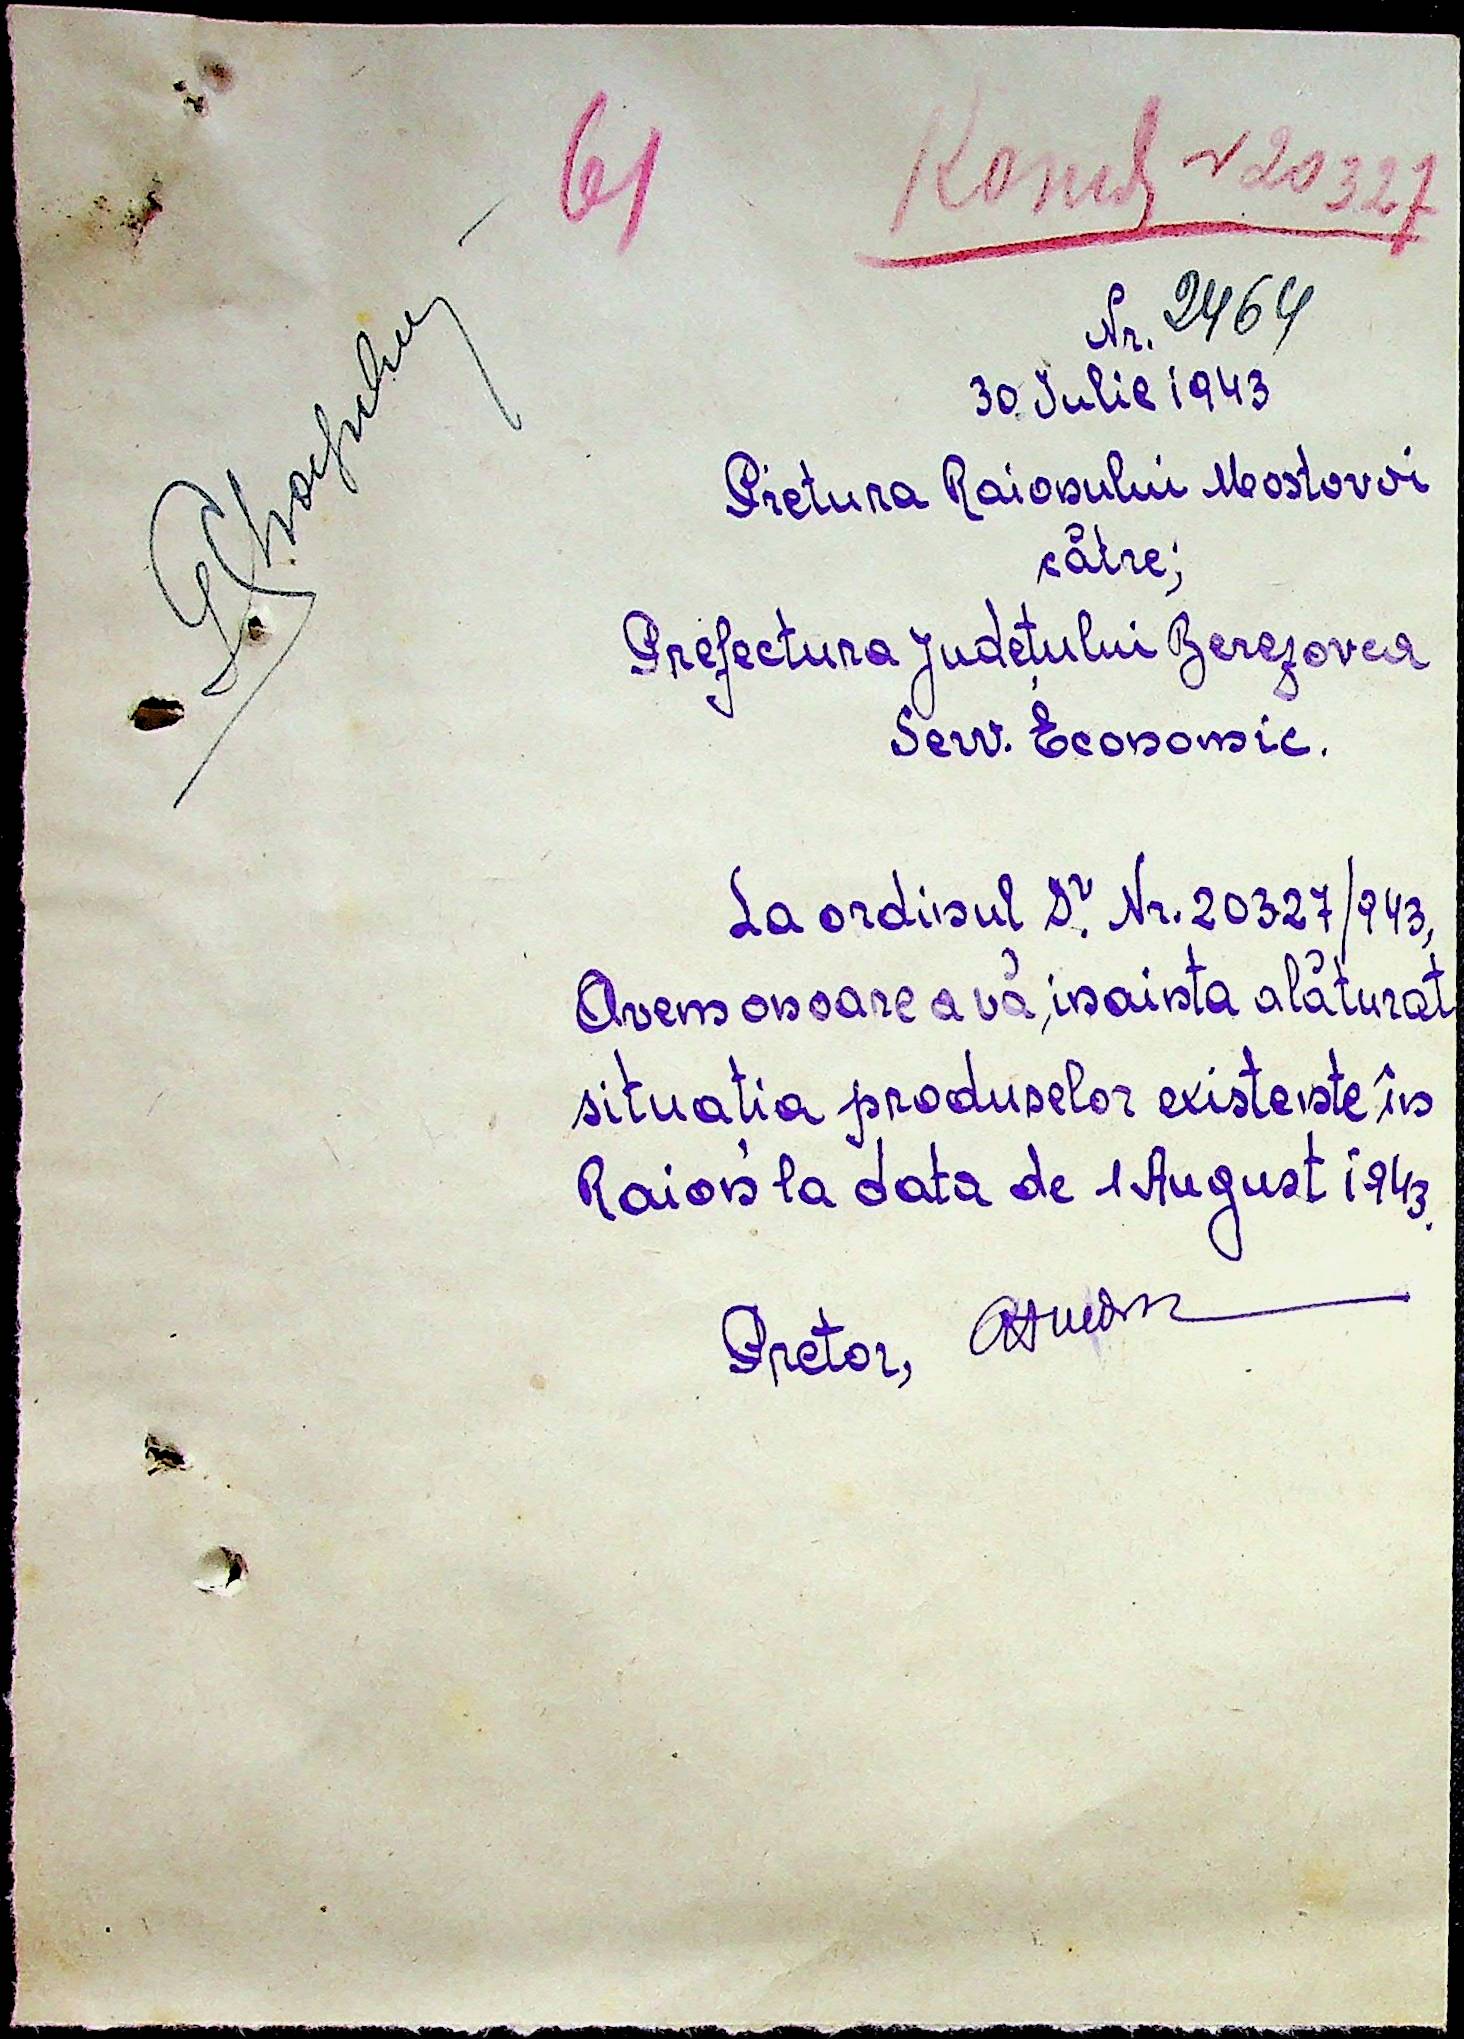 61
N 20327
Nr. 2464
30 Iulie 1943
Pretura Raionului Mostovoi
către;
Prefectura Județului Berezovca
Serv. Economic.
La ordinul Dv. Nr. 20327/943,
Avem onoare a vă, inainta alăturat
situatia produselor existente, în
Raion la data de 1 August 1943.
Pretor,